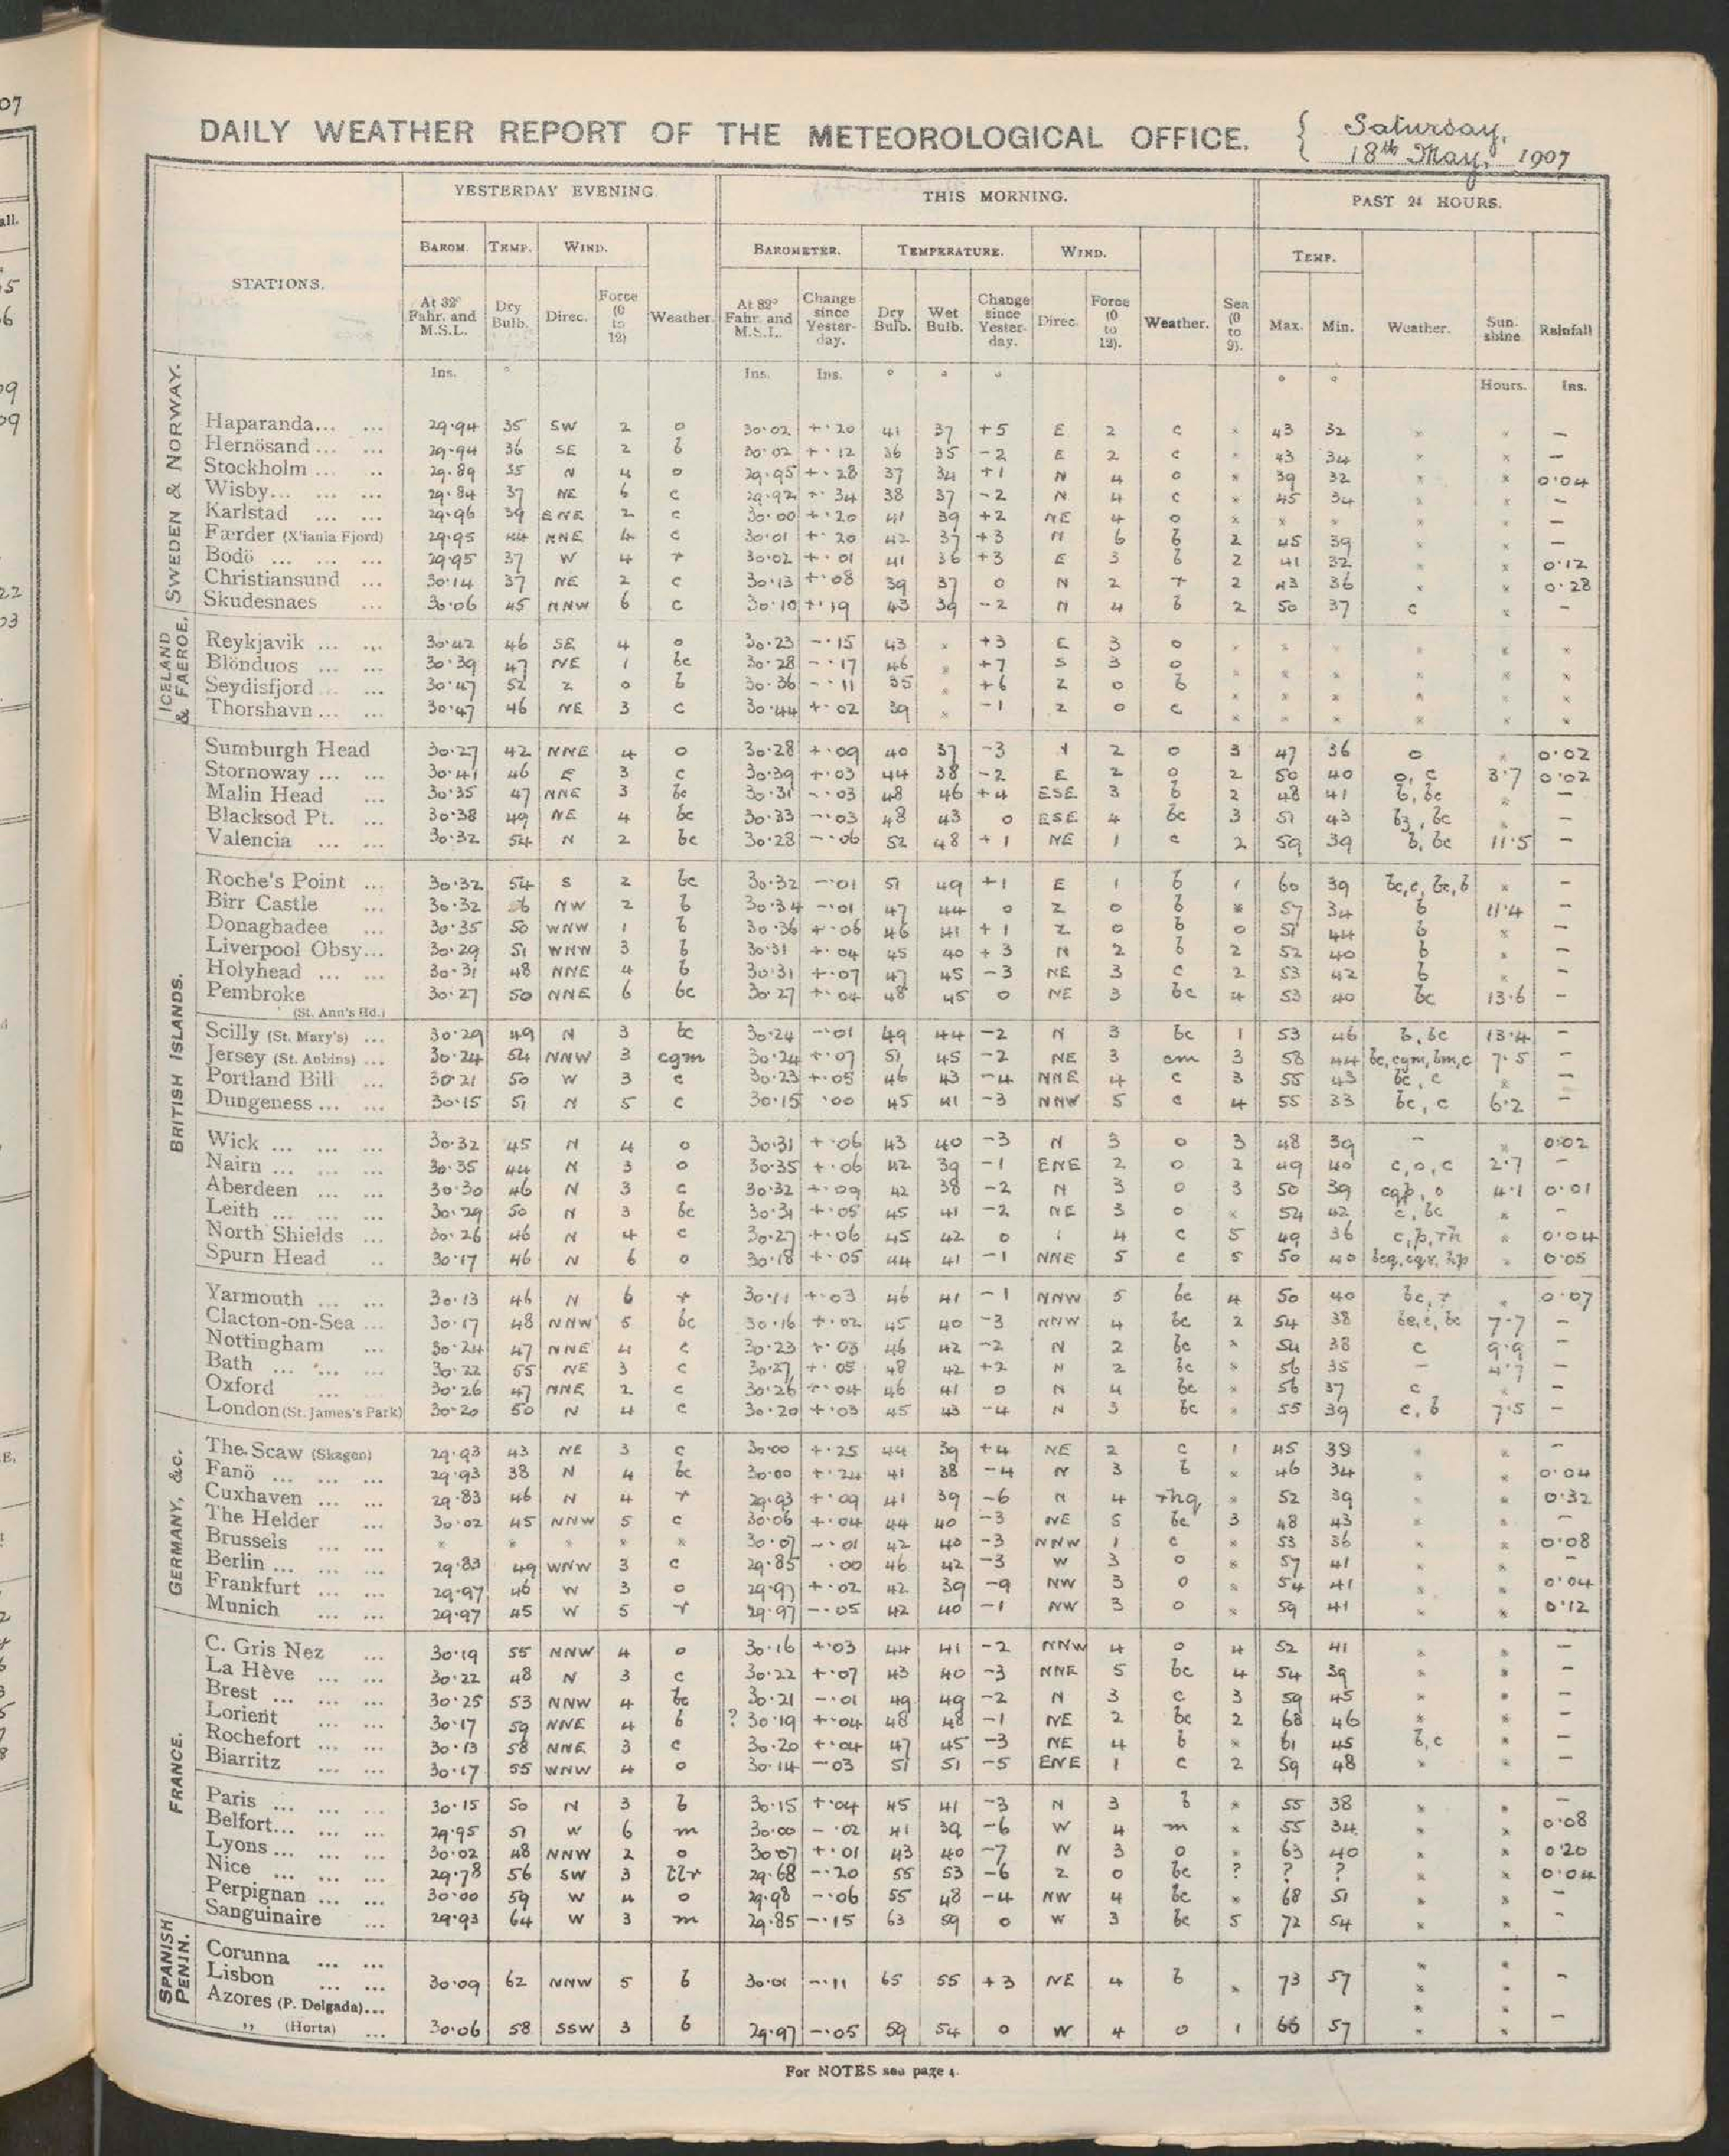 DAILY WEATHER REPORT OF THE METEOROLOGICAL OFFICE. { Saturday, 18th May, 1907
YESTERDAY EVENING. THIS MORNING. PAST 24 HOURS.
STATIONS. BAROM. TEMP. WIND. BAROMETER. TEMPERATURE. WIND. TEMP.
At 32° Fahr. and M.S.L. Dry Bulb. Direc. Force (0 to 12) Weather. At 32° Fahr. and M.S.L. Change since Yesterday. Dry Bulb. Wet Bulb. Change since Yesterday. Direc. Force (0 to 12). Weather. Sea (0 to 9). Max. Min. Weather. Sunshine Rainfall
Ins. ° Ins. Ins. ° ° ° ° ° Hours. Ins.
SWEDEN & NORWAY.
Haparanda... 29.94 35 SW 2 o 30.02 +.20 41 37 +5 E 2 c × 43 32 × × —
Hernösand ... 29.94 36 SE 2 b 30.02 +.12 36 35 -2 E 2 c × 43 34 × × —
Stockholm ... 29.89 35 N 4 o 29.95 +.28 37 34 +1 N 4 o × 39 32 × × 0.04
Wisby... 29.84 37 NE 6 c 29.92 +.34 38 37 -2 N 4 c × 45 34 × × —
Karlstad ... 29.96 39 ENE 2 c 30.00 +.20 41 39 +2 NE 4 o × × × × × —
Færder (X'iania Fjord) 29.95 44 NNE 4 c 30.01 +.20 42 37 +3 N 6 b 2 45 39 × × —
Bodö ... 29.95 37 W 4 r 30.02 +.01 41 36 +3 E 3 b 2 41 32 × × 0.12
Christiansund ... 30.14 37 NE 2 c 30.13 +.08 39 37 0 N 2 r 2 43 36 × × 0.28
Skudesnaes ... 30.06 45 NNW 6 c 30.10 +.19 43 39 -2 N 4 b 2 50 37 c × —
ICELAND & FAEROE.
Reykjavik ... 30.42 46 SE 4 o 30.23 -.15 43 × +3 E 3 o × × × × × ×
Blönduos ... 30.39 47 NE 1 bc 30.28 -.17 46 × +7 S 3 o × × × × × ×
Seydisfjord ... 30.47 52 Z 0 b 30.36 -.11 35 × +6 Z 0 b × × × × × ×
Thorshavn ... 30.47 46 NE 3 c 30.44 +.02 39 × -1 Z 0 c × × × × × ×
BRITISH ISLANDS.
Sumburgh Head 30.27 42 NNE 4 o 30.28 +.09 40 37 -3 2 o 3 47 36 o × 0.02
Stornoway ... 30.41 46 E 3 c 30.39 +.03 44 38 -2 E 2 o 2 50 40 o, c 3.7 0.02
Malin Head ... 30.35 47 NNE 3 bc 30.31 -.03 48 46 +4 ESE 3 b 2 48 41 b, bc × —
Blacksod Pt. ... 30.38 49 NE 4 bc 30.33 -.03 48 43 0 ESE 4 bc 3 51 43 bz, bc × —
Valencia ... 30.32 54 N 2 bc 30.28 -.06 52 48 +1 NE 1 c 2 59 39 b, bc 11.5 —
Roche's Point ... 30.32 54 S 2 bc 30.32 -.01 51 49 +1 E 1 b 1 60 39 bc,c, bc,b × —
Birr Castle ... 30.32 56 NW 2 b 30.34 -.01 47 44 0 Z 0 b × 57 34 b 11.4 —
Donaghadee ... 30.35 50 WNW 1 b 30.36 +.06 46 41 +1 Z 0 b 0 51 44 b × —
Liverpool Obsy... 30.29 51 WNW 3 b 30.31 +.04 45 40 +3 N 2 b 2 52 40 b × —
Holyhead ... 30.31 48 NNE 4 b 30.31 +.07 47 45 -3 NE 3 c 2 53 42 b × —
Pembroke (St. Ann's Hd.) 30.27 50 NNE 6 bc 30.27 +.04 48 45 0 NE 3 bc 4 53 40 bc 13.6 —
Scilly (St. Mary's) ... 30.29 49 N 3 bc 30.24 -.01 49 44 -2 N 3 bc 1 53 46 b, bc 13.4 —
Jersey (St. Aubins) ... 30.24 54 NNW 3 cgm 30.24 +.07 51 45 -2 NE 3 cm 3 58 44 bc,cgm,bm,c 7.5 —
Portland Bill ... 30.21 50 W 3 c 30.23 +.05 46 43 -4 NNE 4 c 3 55 43 bc, c × —
Dungeness ... 30.15 51 N 5 c 30.15 .00 45 41 -3 NNW 5 c 4 55 33 bc, c 6.2 —
Wick ... 30.32 45 N 4 o 30.31 +.06 43 40 -3 N 3 o 3 48 39 — × 0.02
Nairn ... 30.35 44 N 3 o 30.35 +.06 42 39 -1 ENE 2 o 2 49 40 c,o,c 2.7 —
Aberdeen ... 30.30 46 N 3 c 30.32 +.09 42 38 -2 N 3 o 3 50 39 cqp, o 4.1 0.01
Leith ... 30.29 50 N 3 bc 30.31 +.05 45 41 -2 NE 3 o × 54 42 c, bc × —
North Shields ... 30.26 46 N 4 c 30.27 +.06 45 42 0 4 c 5 49 36 c,p,rh × 0.04
Spurn Head .. 30.17 46 N 6 o 30.18 +.05 44 41 -1 NNE 5 c 5 50 40 bcq,cqr, hp × 0.05
Yarmouth ... 30.13 46 N 6 r 30.11 +.03 46 41 -1 NNW 5 bc 4 50 40 bc, r × 0.07
Clacton-on-Sea ... 30.17 48 NNW 5 bc 30.16 +.02 45 40 -3 NNW 4 bc 2 54 38 bc,c, bc 7.7 —
Nottingham ... 30.24 47 NNE 4 c 30.23 +.03 46 42 -2 N 2 bc × 54 38 c 9.9 —
Bath ... 30.22 55 NE 3 c 30.27 +.05 48 42 +2 N 2 bc × 56 35 — 4.7 —
Oxford ... 30.26 47 NNE 2 c 30.26 +.04 46 41 0 N 4 bc × 56 37 c × —
London (St. James's Park) 30.20 50 N 4 c 30.20 +.03 45 43 -4 N 3 bc × 55 39 c, b 7.5 —
GERMANY, &c.
The Scaw (Skagen) 29.93 43 NE 3 c 30.00 +.25 44 39 +4 NE 2 c 1 45 39 × × —
Fanö ... 29.93 38 N 4 bc 30.00 +.24 41 38 -4 N 3 b × 46 34 × × 0.04
Cuxhaven ... 29.83 46 N 4 r 29.93 +.09 41 39 -6 N 4 rhq × 52 39 × × 0.32
The Helder ... 30.02 45 NNW 5 c 30.06 +.04 44 40 -3 NE 5 bc 3 48 43 × × —
Brussels ... × × × × × 30.07 -.01 42 40 -3 NNW 1 c × 53 36 × × 0.08
Berlin ... 29.83 49 WNW 3 c 29.85 .00 46 42 -3 W 3 o × 57 41 × × —
Frankfurt ... 29.97 46 W 3 o 29.97 +.02 42 39 -9 NW 3 o × 54 41 × × 0.04
Munich ... 29.97 45 W 5 r 29.97 -.05 42 40 -1 NW 3 o × 59 41 × × 0.12
FRANCE.
C. Gris Nez ... 30.19 55 NNW 4 o 30.16 +.03 44 41 -2 NNW 4 o 4 52 41 × × —
La Hève ... 30.22 48 N 3 c 30.22 +.07 43 40 -3 NNE 5 bc 4 54 39 × × —
Brest ... 30.25 53 NNW 4 bc 30.21 -.01 49 49 -2 N 3 c 3 59 45 × × —
Lorient ... 30.17 59 NNE 4 b ? 30.19 +.04 48 48 -1 NE 2 bc 2 68 46 × × —
Rochefort ... 30.13 58 NNE 3 c 30.20 +.04 47 45 -3 NE 4 b × 61 45 b,c × —
Biarritz ... 30.17 55 WNW 4 o 30.14 -.03 51 51 -5 ENE 1 c 2 59 48 × × —
Paris ... 30.15 50 N 3 b 30.15 +.04 45 41 -3 N 3 b × 55 38 × × —
Belfort... 29.95 51 W 6 m 30.00 -.02 41 39 -6 W 4 m × 55 34 × × 0.08
Lyons ... 30.02 48 NNW 2 o 30.07 +.01 43 40 -7 N 3 o × 63 40 × × 0.20
Nice ... 29.78 56 SW 3 tlr 29.68 -.20 55 53 -6 Z 0 bc ? ? ? × × 0.04
Perpignan ... 30.00 59 W 4 o 29.98 -.06 55 48 -4 NW 4 bc × 68 51 × × —
Sanguinaire ... 29.93 64 W 3 m 29.85 -.15 63 59 0 W 3 bc 5 72 54 × × —
SPANISH PENIN.
Corunna ... × ×
Lisbon ... 30.09 62 NNW 5 b 30.01 -.11 65 55 +3 NE 4 b × 73 57 × × —
Azores (P. Delgada)... × ×
,, (Horta) ... 30.06 58 SSW 3 b 29.97 -.05 59 54 0 W 4 o 1 66 57 × × —
For NOTES see page 4.